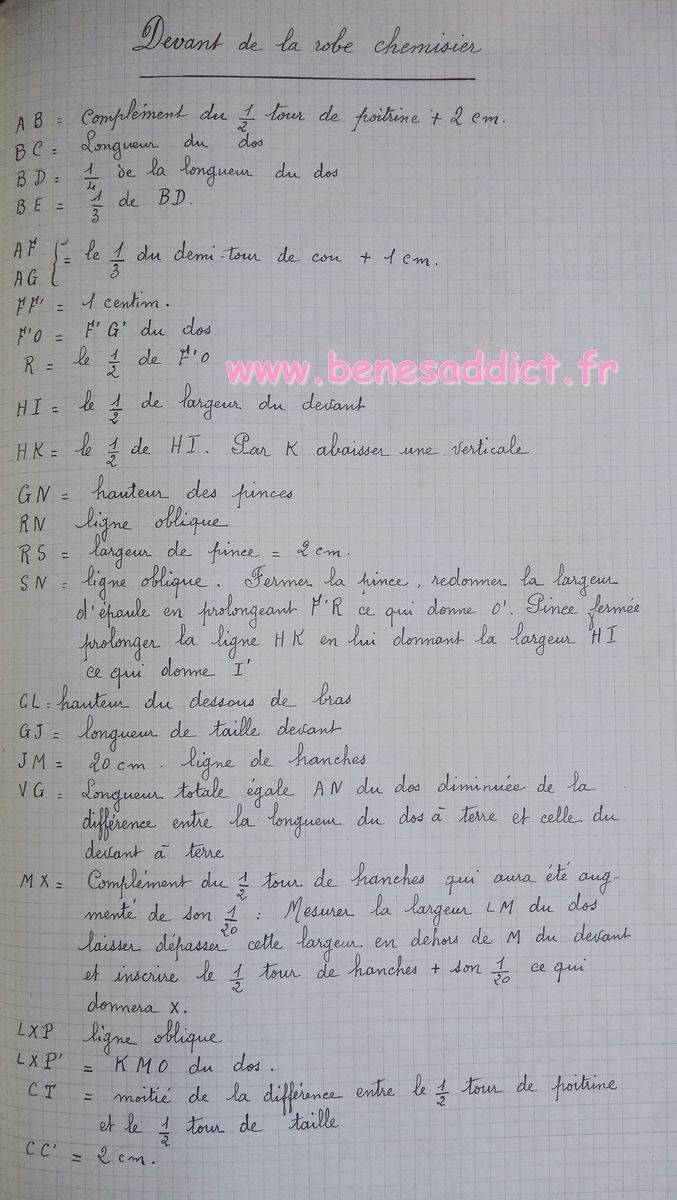 Devant de la robe chemisier
AB = Complément du 1/2 tour de poitrine + 2 cm.
BC = Longueur du dos
BD = 1/4 de la longueur du dos
BE = 1/3 de BD.
AF
AG } = le 1/3 du demi-tour de cou + 1 cm.
FF' = 1 centim.
F'O = F'G' du dos
R = le 1/2 de F'O
www.benesaddict.fr
HI = le 1/2 de largeur du devant
HK = le 1/2 de HI. Par K abaisser une verticale
GN = hauteur des pinces
RN ligne oblique
RS = largeur de pince = 2 cm.
SN = ligne oblique. Fermer la pince, redonner la largeur
d'épaule en prolongeant F'R ce qui donne O'. Pince fermée
prolonger la ligne HK en lui donnant la largeur HI
ce qui donne I'
CL = hauteur du dessous de bras
GJ = longueur de taille devant
JM = 20 cm. ligne de hanches
VG = Longueur totale égale AN du dos diminuée de la
différence entre la longueur du dos à terre et celle du
devant à terre
MX = Complément du 1/2 tour de hanches qui aura été aug-
menté de son 1/20 : Mesurer la largeur LM du dos
laisser dépasser cette largeur en dehors de M du devant
et inscrire le 1/2 tour de hanches + son 1/20 ce qui
donnera X.
LXP ligne oblique
LXP' = KMO du dos.
CT = moitié de la différence entre le 1/2 tour de poitrine
et le 1/2 tour de taille
CC' = 2 cm.